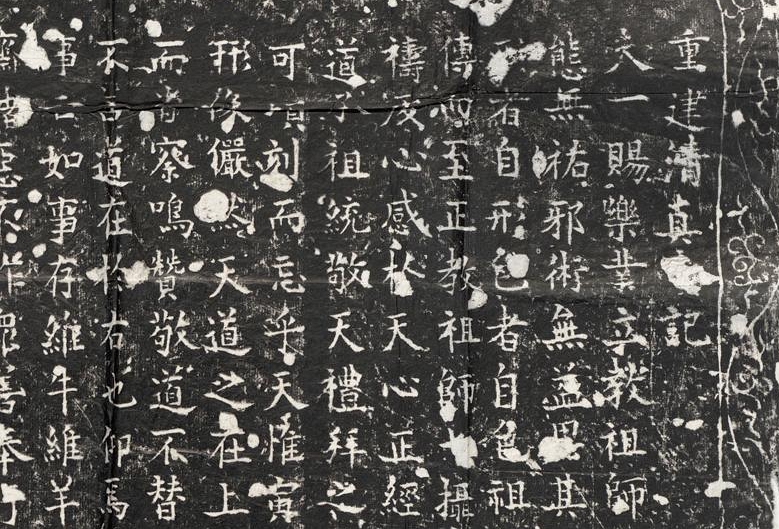 重建清真記
夫一賜樂業立教祖師
態無祐邪術無益思其
者自形色者自色祖
傳而至正教祖師攝
禱心感於天心正經
道祖統敬天禮拜之
可頃刻而忘乎天惟寅
形像儼然天道之在上
而察鳴贊敬道不替
不言道在於右也仰焉
事亡如事存維牛維羊
惡不作善奉行